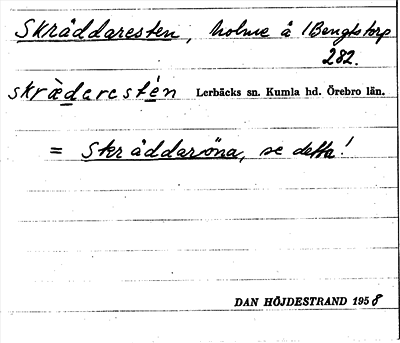 Skräddaresten, holme å 1 Bengtstorp
282.
skrä̀daresté̱n Lerbäcks sn. Kumla hd. Örebro län.
= Skräddaröna, se detta!
DAN HÖJDESTRAND 1958